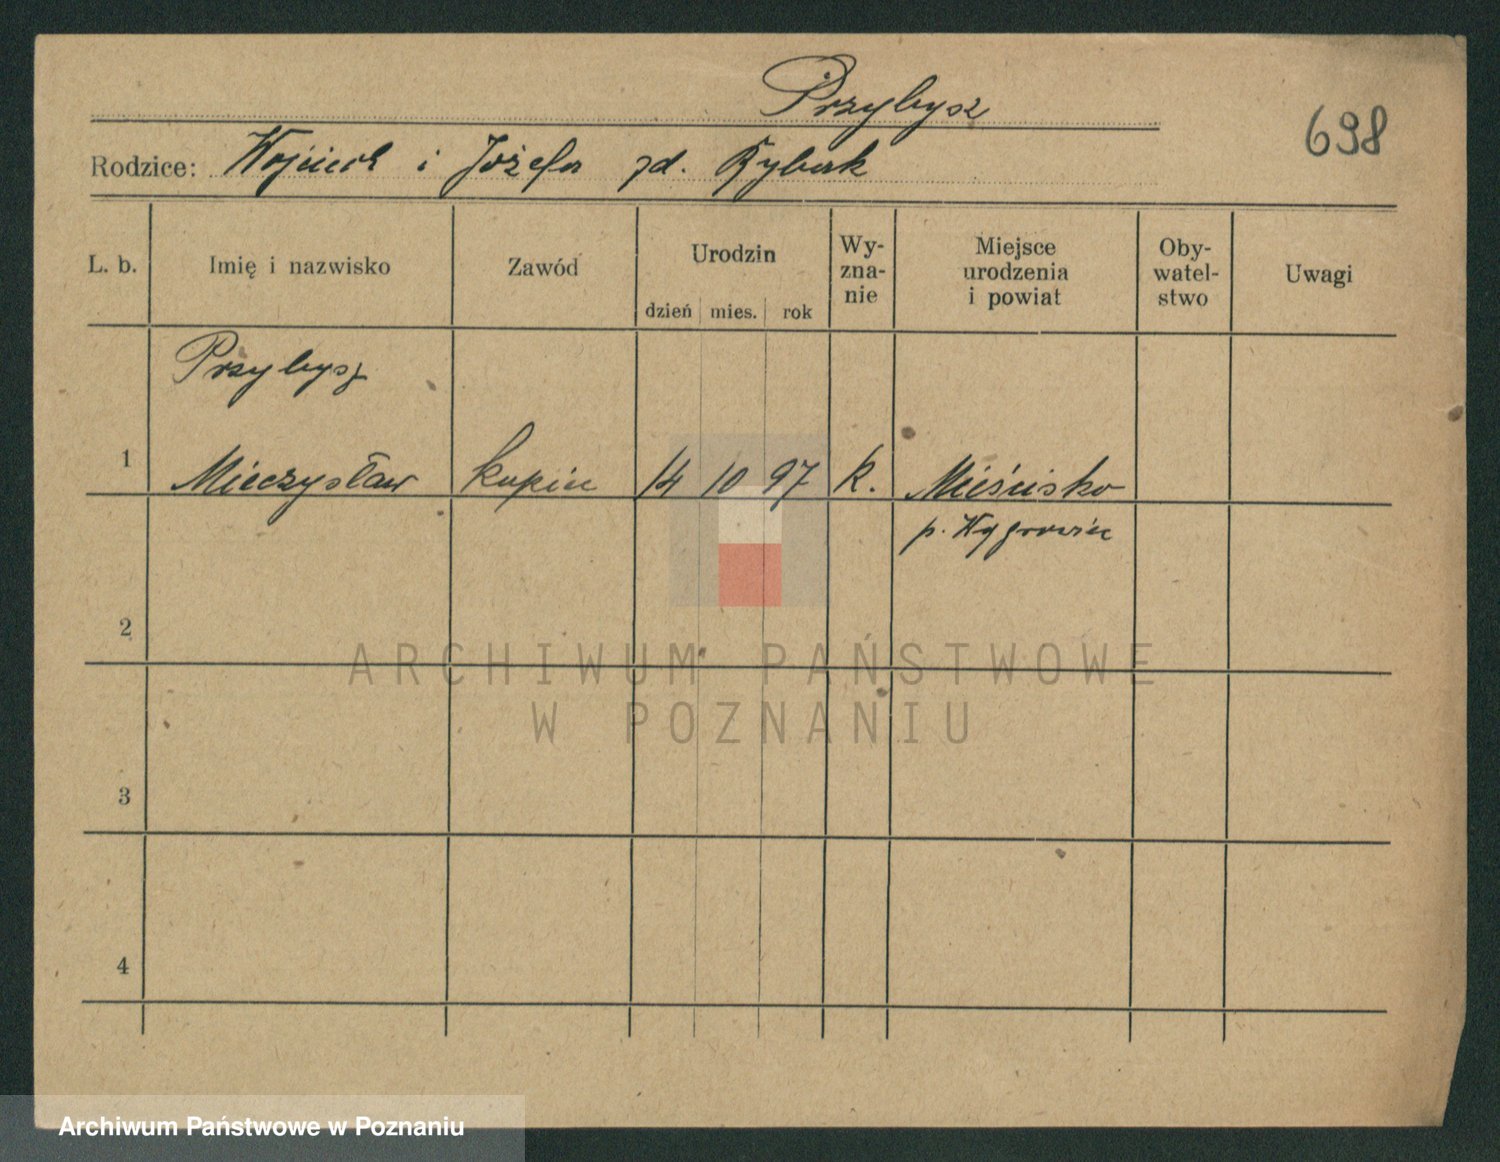 Przybysz
698
Rodzice: Wojciech i Józefa zd. Rybak
L. b. Imię i nazwisko Zawód Urodzin dzień mies. rok Wy-zna-nie Miejsce urodzenia i powiat Oby-watel-stwo Uwagi
Przybysz
1 Mieczysław kupiec 14 10 97 k. Mieścisko
p. Wągrowiec
2
ARCHIWUM PAŃSTWOWE
W POZNANIU
3
4
Archiwum Państwowe w Poznaniu